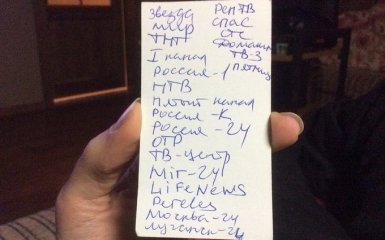 Звезда РенТВ
Мир Спас
ТНТ СТС
I канал Домашний
Россия-1 ТВ-3
НТВ Пятница
Пятый канал
Россия-К
Россия-24
ОТР
ТВ-Центр
Мir-24
LifeNews
Москва-24
Луганск-24